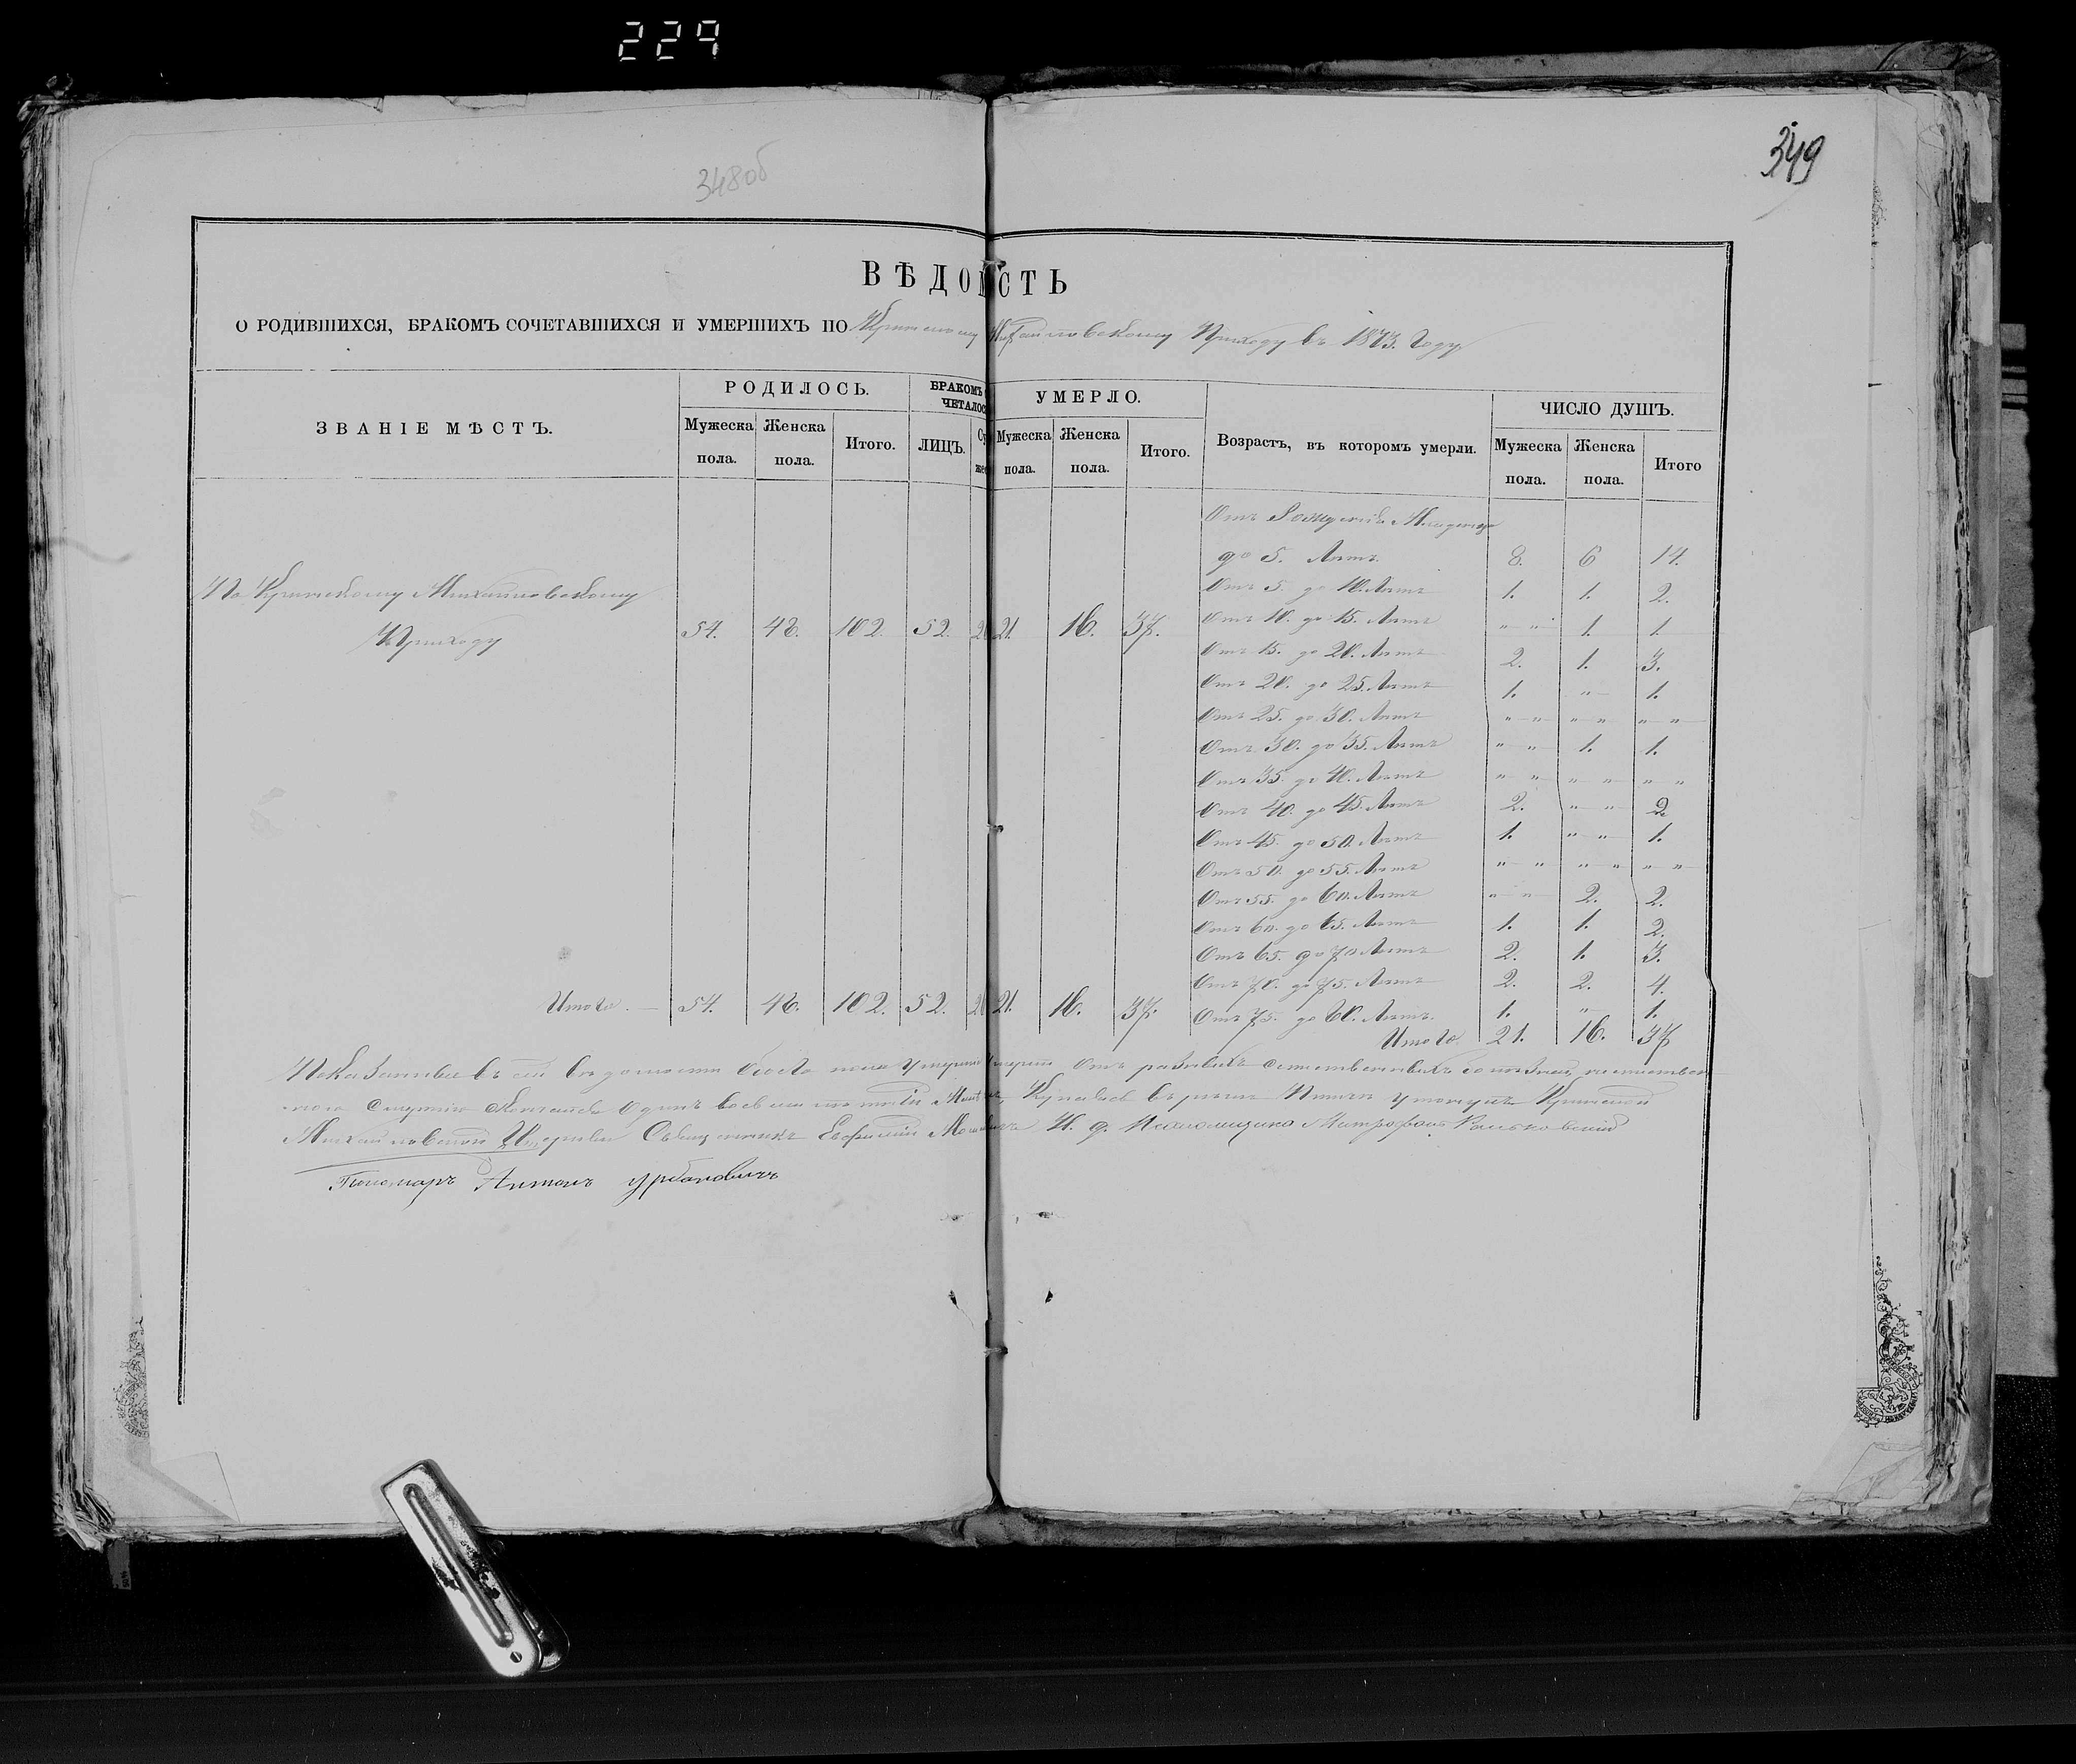 229
348об
349
ВѢДОМСТЬ
О РОДИВШИХСЯ, БРАКОМЪ СОЧЕТАВШИХСЯ И УМЕРШИХЪ ПО Михайловскому Приходу въ 1873. Году
ЗВАНІЕ МѢСТЪ.
РОДИЛОСЬ.
Мужеска пола.
Женска пола.
Итого.
БРАКОМЪ
ЧЕТАЛОС
ЛИЦЪ.
УМЕРЛО.
Мужеска пола.
Женска пола.
Итого.
Возрастъ, въ которомъ умерли.
ЧИСЛО ДУШЪ.
Мужеска пола.
Женска пола.
Итого
По Михайловскому
Приходу
54. 48. 102. 52. 21. 16. 37.
Отъ Рожденія Младенца
до 5. Лѣтъ. 8. 6 14.
Отъ 5. до 10. Лѣтъ 1. 1. 2.
Отъ 10. до 15. Лѣтъ " " 1. 1.
Отъ 15. до 20. Лѣтъ 2. 1. 3.
Отъ 20. до 25. Лѣтъ 1. " 1.
Отъ 25. до 30. Лѣтъ " " " " " "
Отъ 30. до 35. Лѣтъ " " 1. 1.
Отъ 35. до 40. Лѣтъ " " " " " "
Отъ 40. до 45. Лѣтъ 2. " " 2.
Отъ 45. до 50. Лѣтъ 1. " " 1.
Отъ 50. до 55. Лѣтъ " " " " " "
Отъ 55. до 60. Лѣтъ " " 2. 2.
Отъ 60. до 65. Лѣтъ 1. 1. 2.
Отъ 65. до 70 Лѣтъ 2. 1. 3.
Отъ 70. до 75. Лѣтъ 2. 2. 4.
Отъ 75. до 80. Лѣтъ. 1. " 1.
Итого. — 54. 48. 102. 52. 21. 16. 37.
Итого. 21. 16. 37
Показанные въ сей вѣдомости обоего пола умершіе умерли отъ разныхъ естественныхъ болѣзней,
смертію Одинъ купаясь въ рѣкѣ Птичи утонулъ
Михайловской Церкви Священникъ Евфимій И. д. Псаломщика Митрофанъ
Пономарь Антонъ Урбановичъ